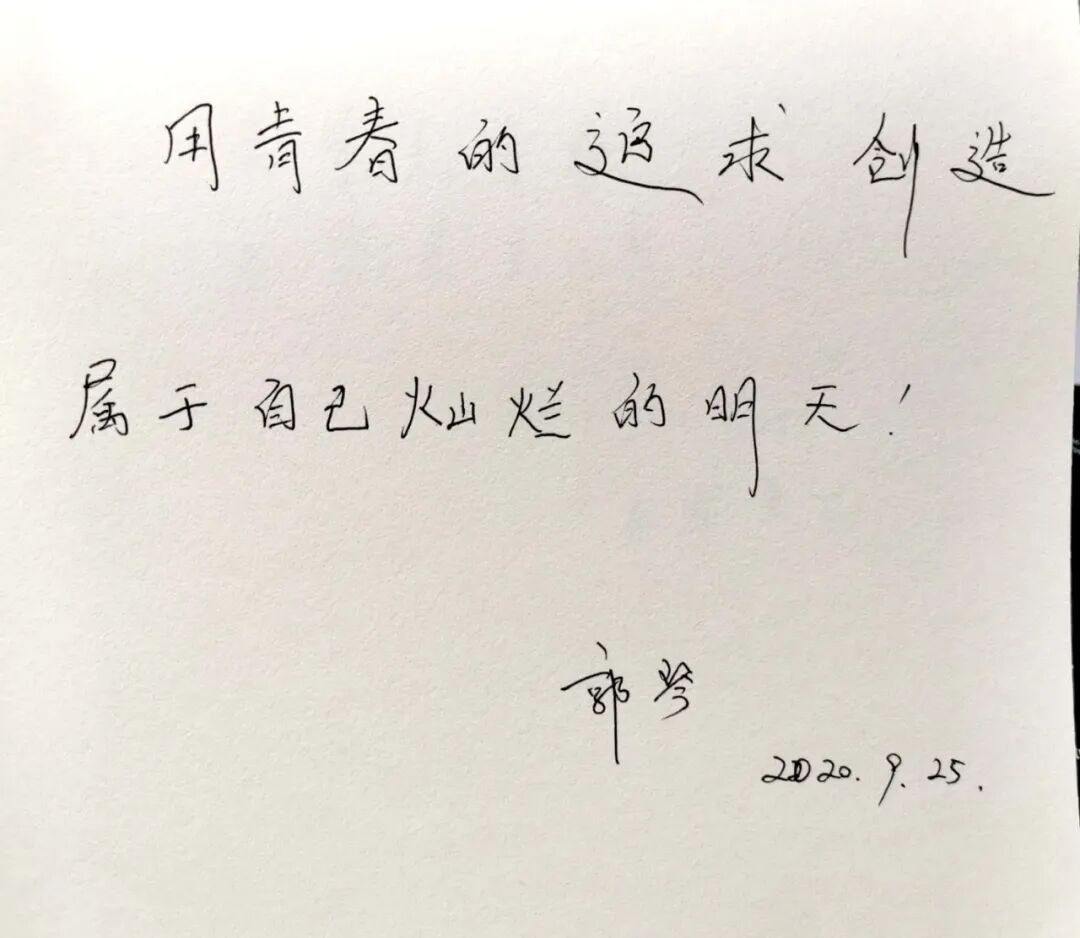 用青春的追求创造
属于自己灿烂的明天！
郭琴
2020.9.25.